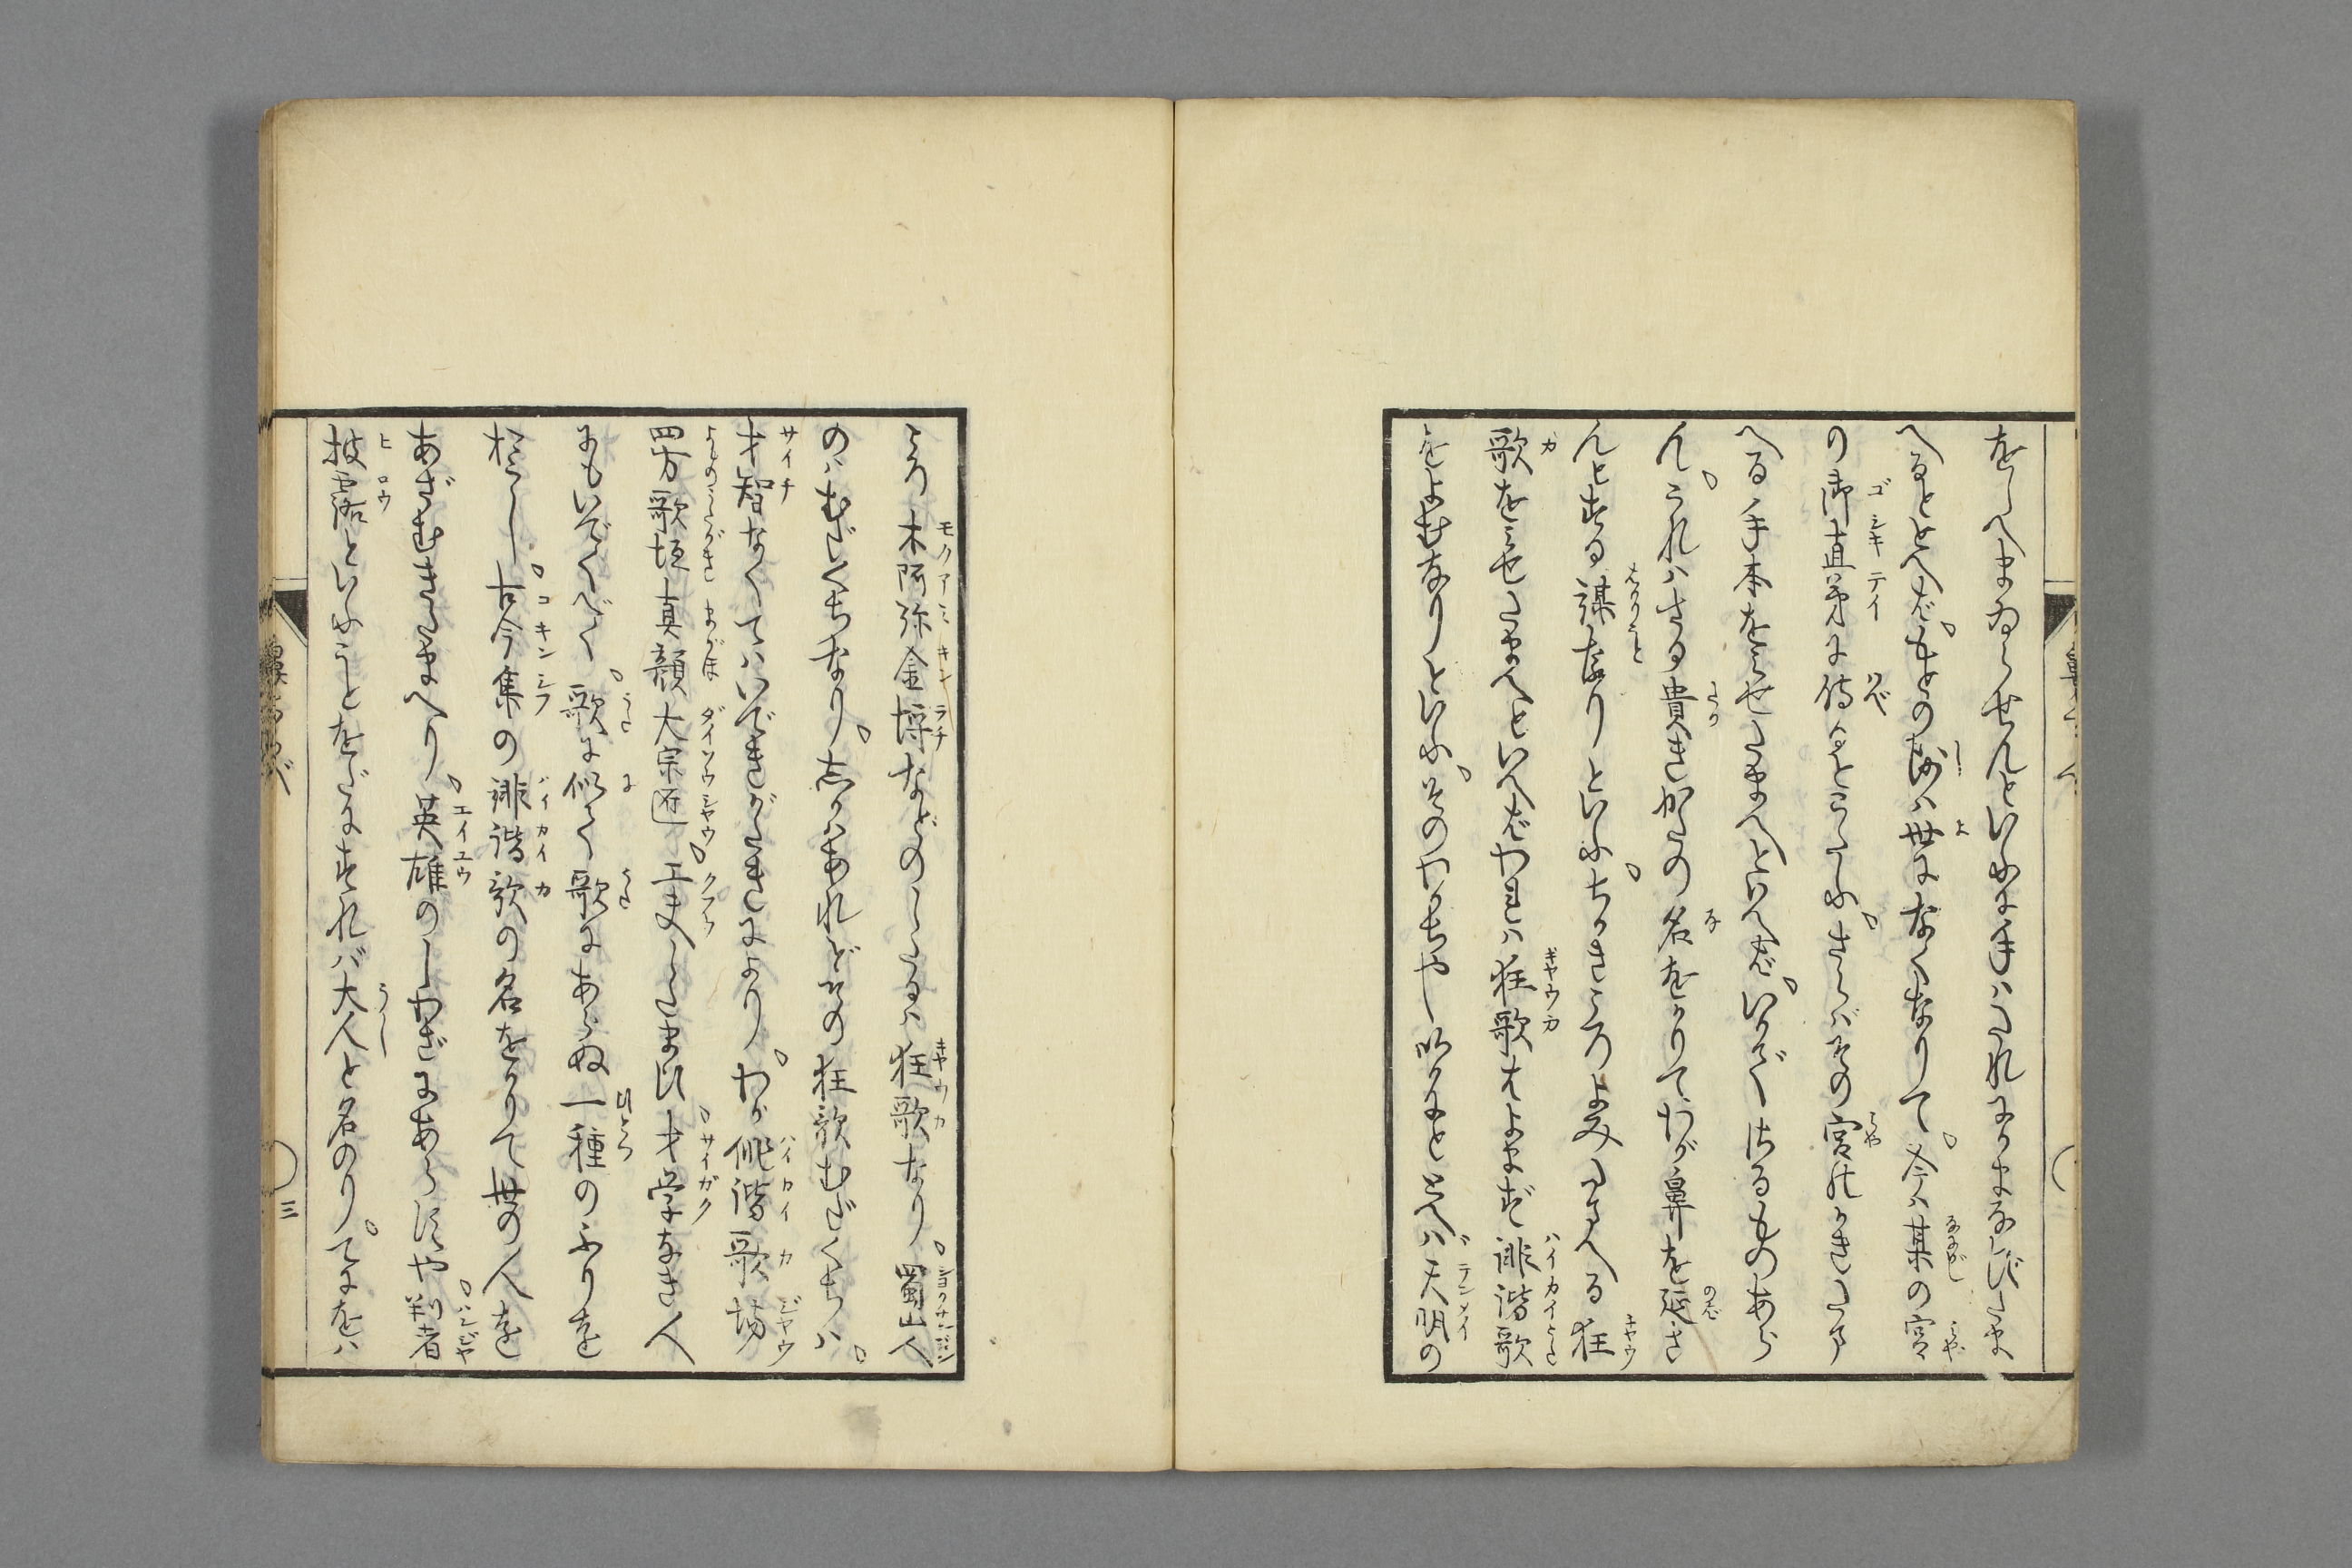 をしへまゐらせんといふ手ハたれにかまなびたま
へるととへば、もとの師ハ世になくなりて、今ハ某の宮
の御直弟に侍るとこたふ、さらバその宮のかきたま
へる手本をみせたまへといへば、いかでさるものあら
ん、これハさる貴きかたの名をかりてわが鼻を延さ
んとする謀なりといふ、ちかきころよみたまへる狂
歌をみせたまへといへばわれハ狂歌はよまず誹諧歌
をよむなりといふ、そのわかちやいかにととへバ天明の
ころ木阿弥金埒などのしたるハ狂歌なり、蜀山人
のハむだくちなり、しかハあれどその狂歌むだくちハ、
才智なくてハいできがたきにより、わが俳諧歌場
四方歌垣真顔大宗匠、工夫したまひ、才学なき人
にもいでくべく、歌に似て歌にあらぬ一種のふりを
おこし、古今集の誹諧歌の名をかりて世の人を
あざむきたまへり、英雄のしわざにあらずや、判者
披露といふことをだにすれバ大人と名のり、てにをハ
三